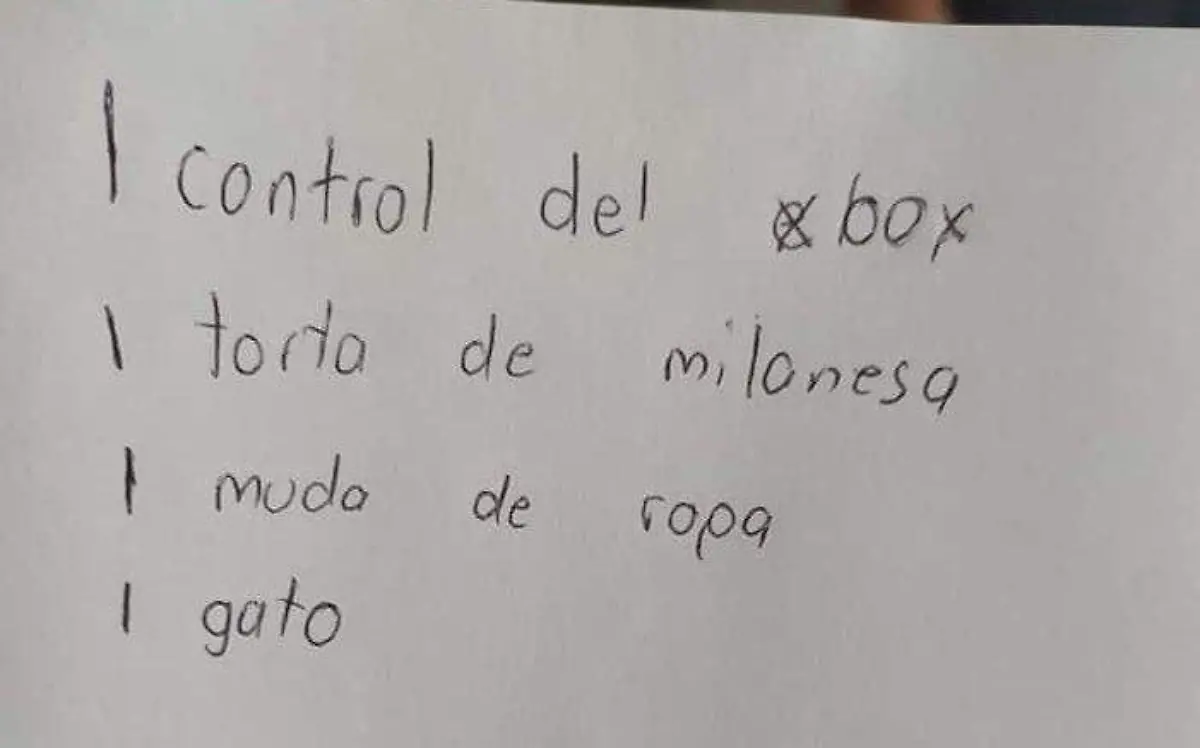 1 control del xbox
1 torta de milanesa
1 muda de ropa
1 gato